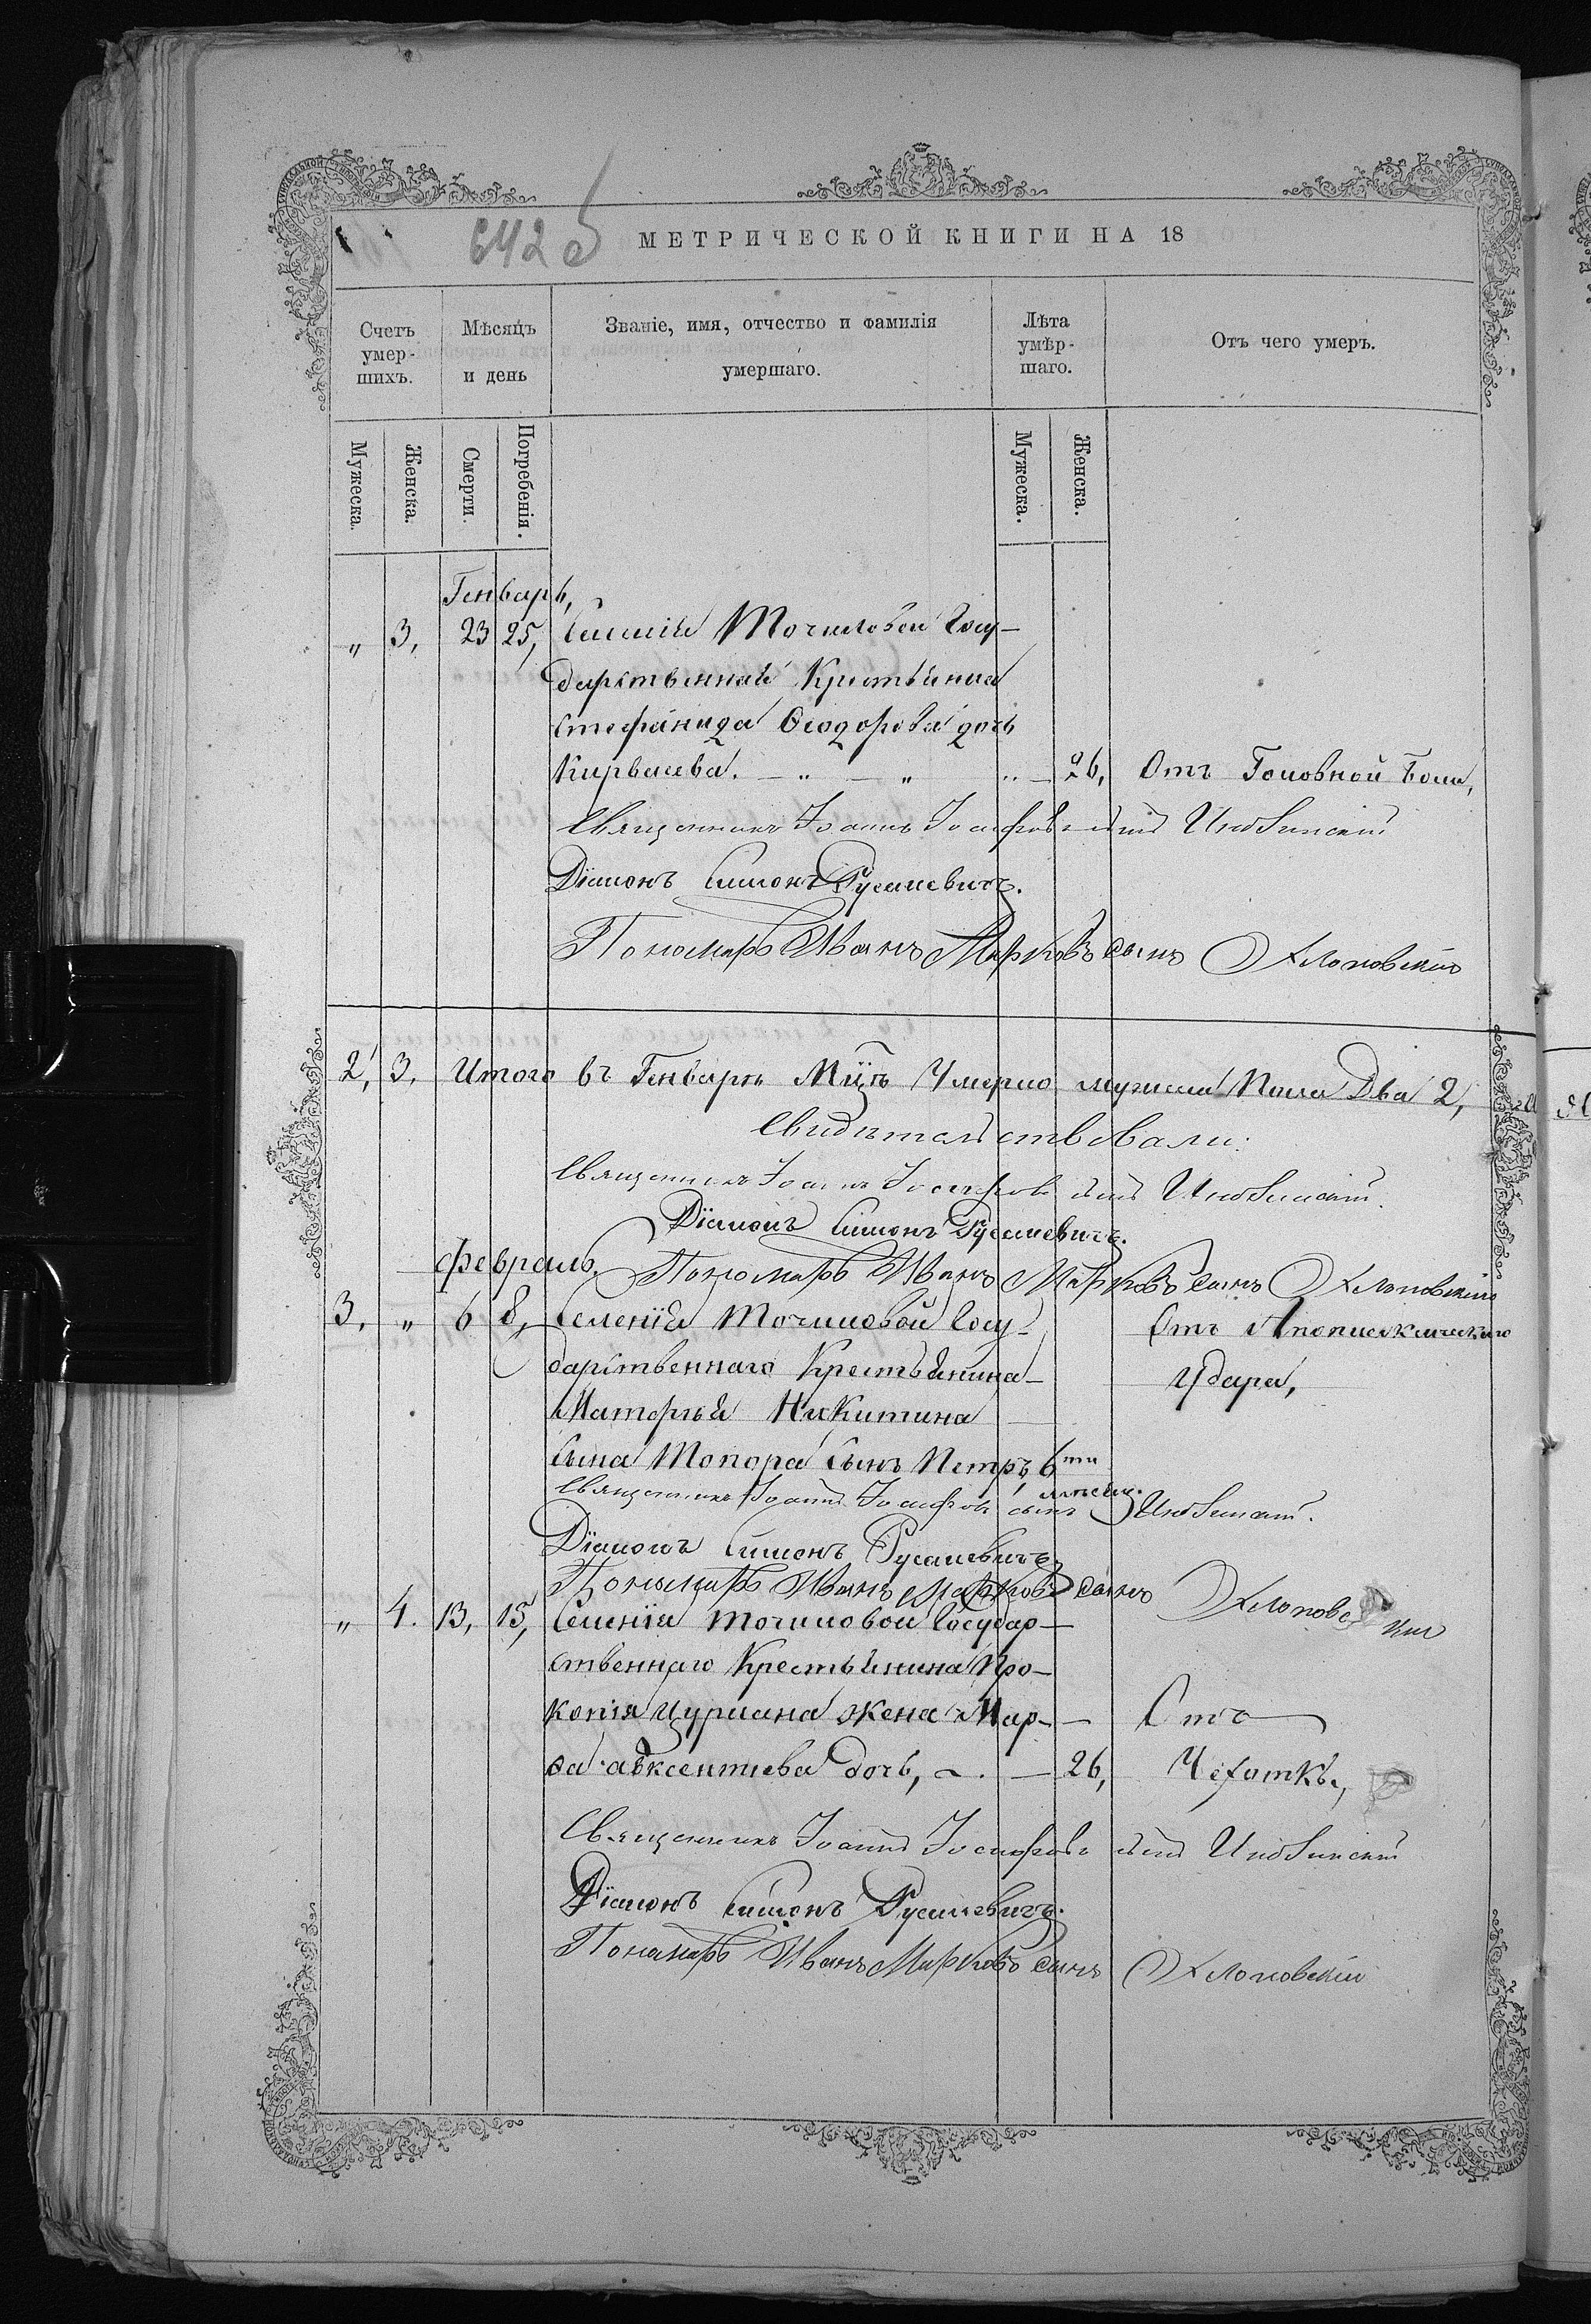 642 б
МЕТРИЧЕСКОЙ КНИГИ НА 18
Счетъ умер-шихъ.
Мѣсяцъ и день
Званіе, имя, отчество и фамилія умершаго.
Лѣта умѣр-шаго.
Отъ чего умеръ.
Мужеска.
Женска.
Смерти.
Погребенія.
Мужеска.
Женска.
Генварь,
" 3, 23 25, Селенія Точиловой Госу-
дарственная Крестьянка
Стефанида Ѳеодорова дочь
— " — " " — 26, Отъ Головной Боли,
Священникъ Іоаннъ Іосифовъ сынъ
Діаконъ Симонъ Русалевичъ.
Пономарь Иванъ Марковъ сынъ Хлоповскій
2, 3, Итого въ Генварѣ М͠цѣ Умерло мужеска Пола Два 2,
Свидѣтельствовали:
Священникъ Іоаннъ Іосифовъ сынъ
Діаконъ Симонъ Русалевичъ.
Февраль, Пономарь Иванъ Марковъ сынъ Хлоповскій
3, " 6 8, Селенія Точиловой Госу- Отъ Апоплексическаго
дарственнаго Крестьянина Удара,
Матфея Никитина
Сына Топора Сынъ Петръ, 6ти
Священникъ Іоаннъ Іосифовъ сынъ
Діаконъ Симонъ Русалевичъ
Пономарь Иванъ Марковъ сынъ Хлоповскій
" 4. 13, 15, Селенія Точиловой Государ-
ственнаго Крестьянина Про-
копія Цуркана жена Мар- — Отъ
ѳа Авксентіева дочь, — . — 26, Чехоткѣ,
Священникъ Іоаннъ Іосифовъ сынъ
Діаконъ Симонъ Русалевичъ.
Пономарь Иванъ Марковъ сынъ Хлоповскій